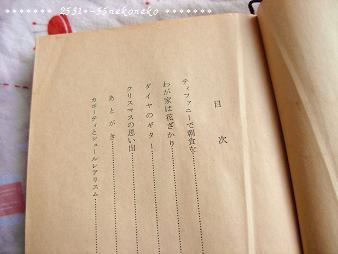 ******* 2531*-55nekoneko *******
目次
ティファニーで朝食を
わが家は花ざかり
ダイヤのギター
クリスマスの思い出
あとがき
カポーティとシュールレアリスム